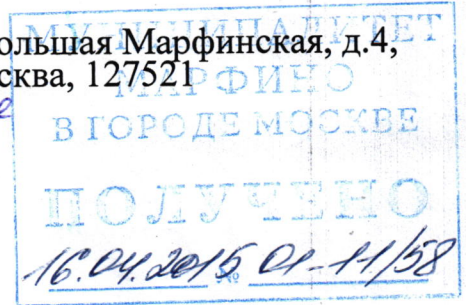 ольшая Марфинская, д.4,
сква, 127521
МУНИЦИПАЛИТЕТ
МАРФИНО
В ГОРОДЕ МОСКВЕ
ПОЛУЧЕНО
16.04.2015 № 01-11/58